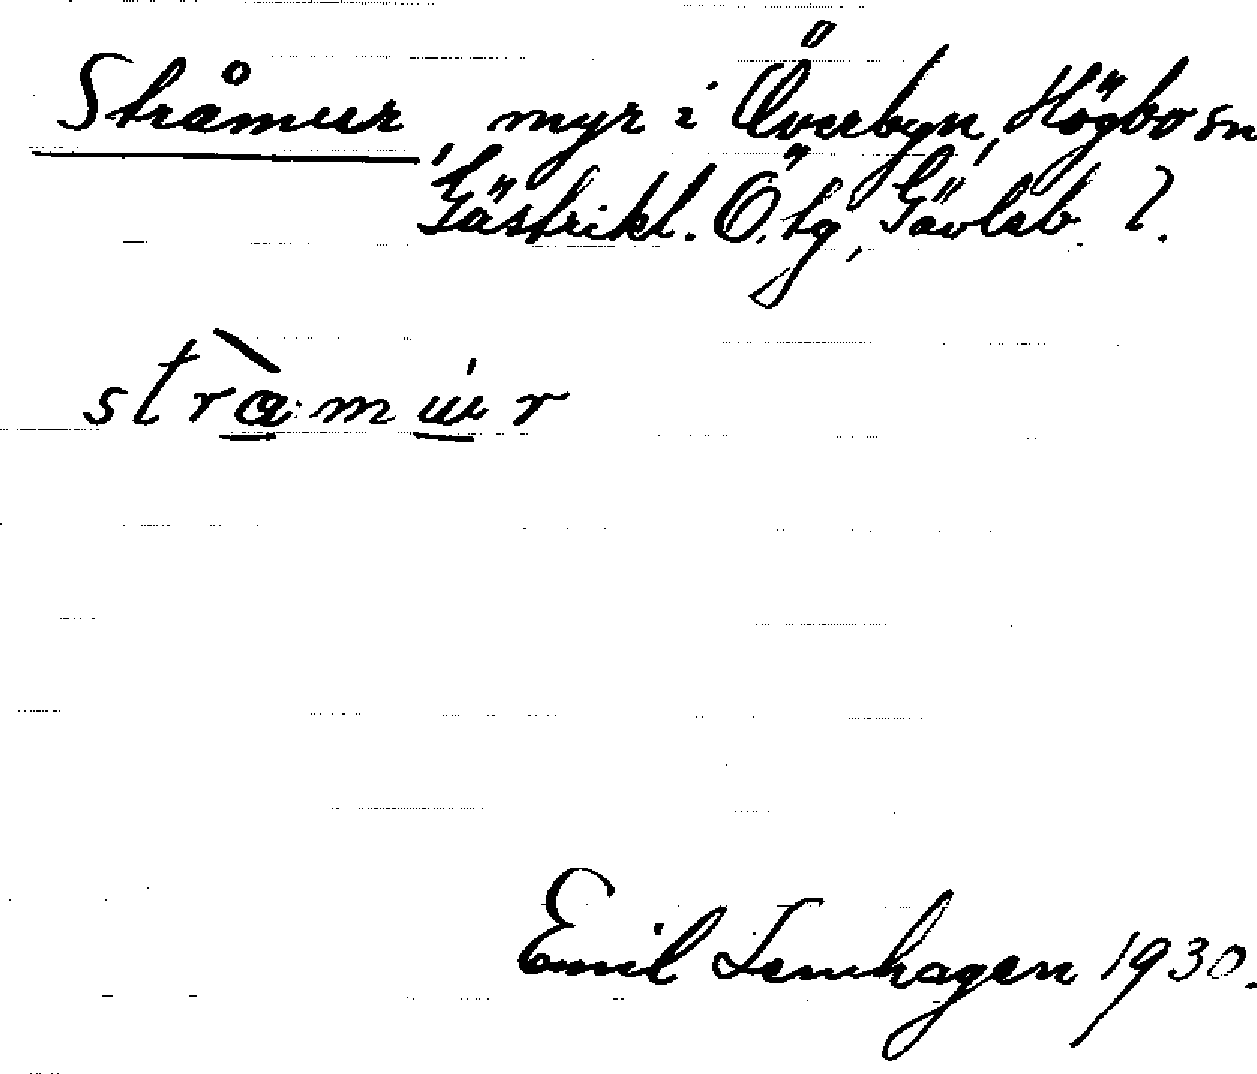 Stråmur, myr i Överbyn, Högbo sn
Gästrikl. Ö. tg, Gävleb l.
stràmúr
Emil Temhagen 1930.